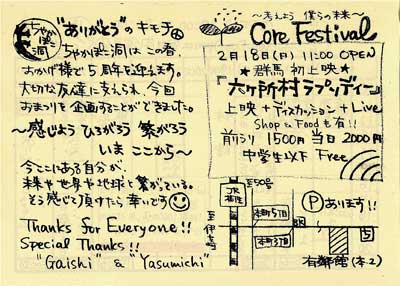 ちゃかぽこ洞
"ありがとう"のキモチ
ちゃかぽこ洞は この春、
おかげ様で5周年を迎えます。
大切な友達に支えられ、今回
おまつりを企画することができました。
〜感じよう ひろがろう 繋がろう
いま ここから〜
今ここにある自分が、
未来や世界や地球と繋がっている。
そう感じて頂けたら幸いです
Thanks for Everyone!!
Special Thanks!!
"Gaishi" & "Yasumichi"
〜考えよう 僕らの未来〜
Core Festival
2月18日(日) 11:00 OPEN
★群馬 初上映★
『六ヶ所村ラプソディー』
上映+ディスカッション+Live
Shop & Food も有!!
前売り 1500円 当日 2000円
中学生以下 Free
至50号
JR
至伊
本町5丁目
本町3丁目
P あります!!
5
有鄰館(本2)